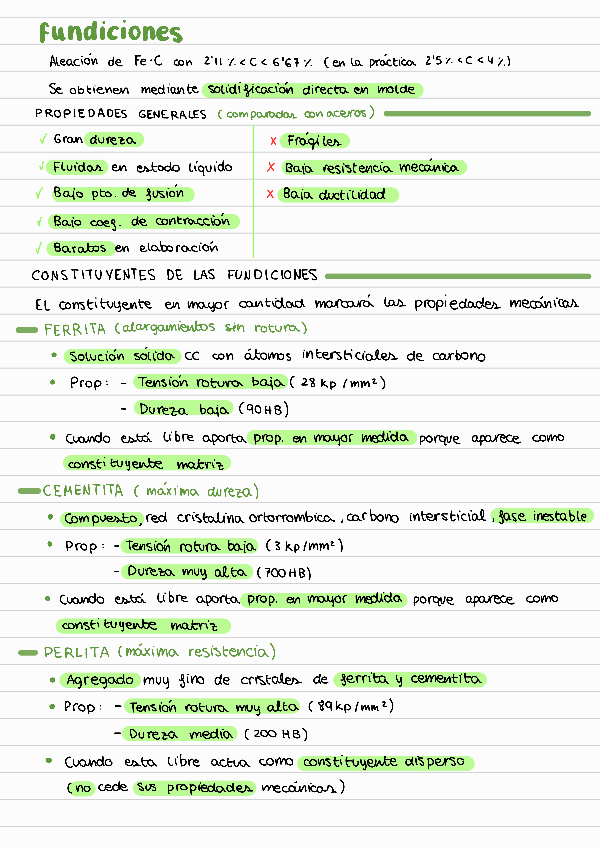 Fundiciones
Aleación de Fe-C con 2'11 % < C < 6'67 % (en la práctica 2'5 % < C < 4 %)
Se obtienen mediante solidificación directa en molde
PROPIEDADES GENERALES (comparadas con aceros)
✓ Gran dureza
x Frágiles
✓ Fluidas en estado líquido
x Baja resistencia mecánica
✓ Bajo pto. de fusión
x Baja ductilidad
✓ Bajo coeg. de contracción
✓ Baratos en elaboración
CONSTITUYENTES DE LAS FUNDICIONES
EL constituyente en mayor cantidad marcará las propiedades mecánicas
FERRITA (alargamientos sin rotura)
• Solución sólida CC con átomos intersticiales de carbono
• Prop: - Tensión rotura baja (28 kp/mm²)
- Dureza baja (90 HB)
• Cuando está libre aporta prop. en mayor medida porque aparece como
constituyente matriz
CEMENTITA (máxima dureza)
• Compuesto, red cristalina ortorrombica, carbono intersticial, fase inestable
• Prop: - Tensión rotura baja (3 kp/mm²)
- Dureza muy alta (700 HB)
• Cuando está libre aporta prop. en mayor medida porque aparece como
constituyente matriz
PERLITA (máxima resistencia)
• Agregado muy fino de cristales de ferrita y cementita
• Prop: - Tensión rotura muy alta (89 kp/mm²)
- Dureza media (200 HB)
• Cuando esta libre actua como constituyente disperso
(no cede sus propiedades mecánicas)